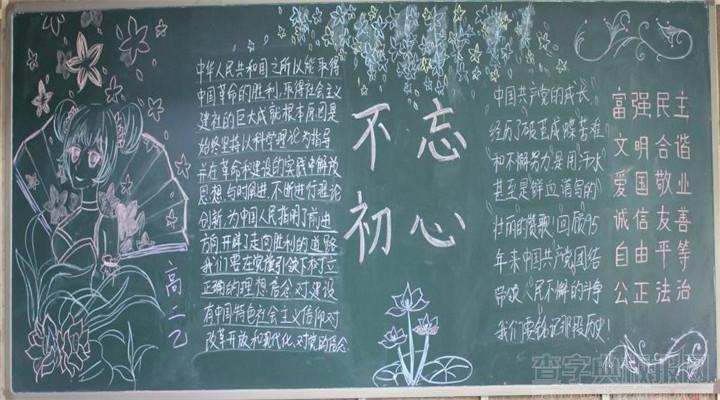 中华人民共和国之所以能取得
中国革命的胜利,取得社会主义
建设的巨大成就根本原因是
始终坚持以科学理论为指导
并在革命和建设的实践中解放
思想,与时俱进,不断进行理论
创新,为中国人民指明了前进
方向,开辟了走向胜利的道路
我们要在党旗引领下树立
正确的理想信念,对建设
有中国特色社会主义信仰,对
改革开放和现代化,对党的信念
高二乙
不忘
初心
中国共产党的成长,
经历了艰苦
和不懈努力是用汗水
甚至是鲜血谱写的
壮丽的赞歌!回顾95
年来中国共产党团结
带领人民不懈的斗争
我们要铭记那段历史!
富强民主
文明合谐
爱国敬业
诚信友善
自由平等
公正法治
查字典